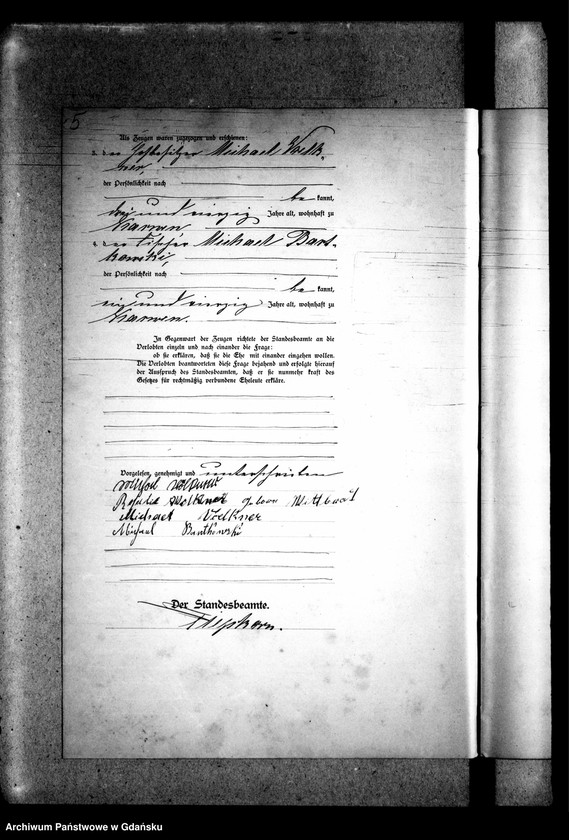 5
Als Zeugen waren zugezogen und erschienen:
3. der Hofbesitzer Michael Voelk-
ner,
der Persönlichkeit nach
be kannt,
drei und vierzig Jahre alt, wohnhaft zu
Karwen
4. der Fischer Michael Bart-
kowski,
der Persönlichkeit nach
be kannt,
ein und vierzig Jahre alt, wohnhaft zu
Karwen.
In Gegenwart der Zeugen richtete der Standesbeamte an die
Verlobten einzeln und nach einander die Frage:
ob sie erklären, daß sie die Ehe mit einander eingehen wollen.
Die Verlobten beantworteten diese Frage bejahend und erfolgte hierauf
der Ausspruch des Standesbeamten, daß er sie nunmehr kraft des
Gesetzes für rechtmäßig verbundene Eheleute erkläre.
Vorgelesen, genehmigt und unterschrieben
Rosalie Voelkner geborn
Michael Voelkner
Michael Bartkowski
Der Standesbeamte.
Archiwum Państwowe w Gdańsku